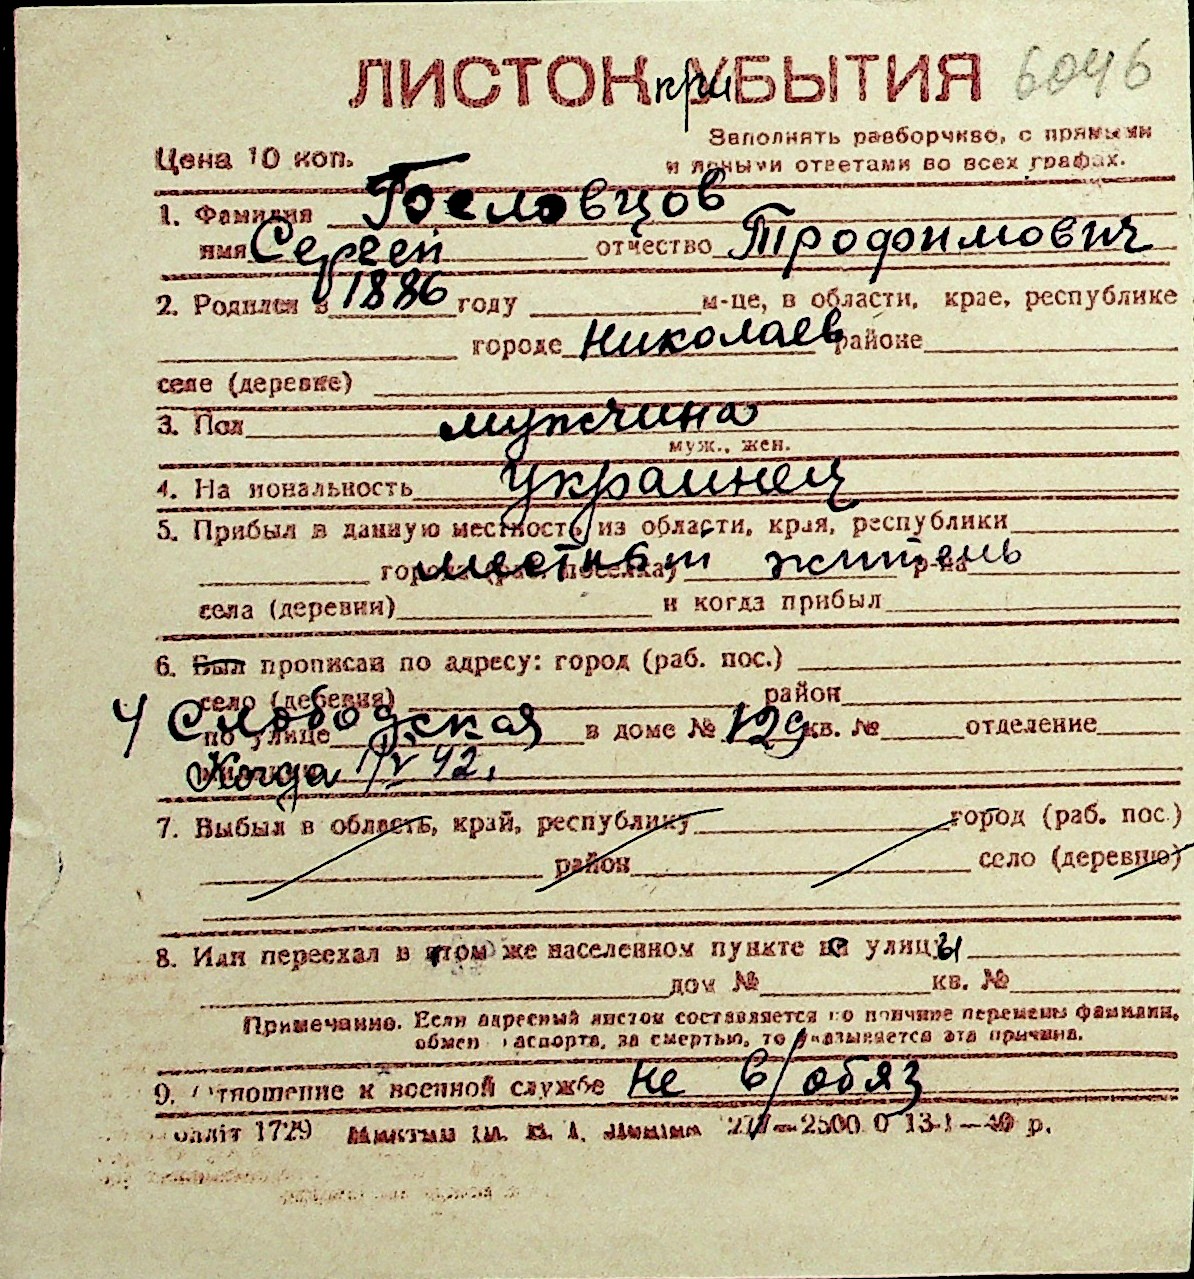 ЛИСТОК при УБЫТИЯ 6046
Заполнять разборчиво, с прямыми
Цена 10 коп.
и ясными ответами во всех графах.
1. Фамилия Гословцов
имя Сергей отчество Трофимович
2. Родился в 1886 году м-це, в области, крае, республике
городе Николаев районе
селе (деревне)
3. Пол мужчина
муж., жен.
4. На иональность украинец
5. Прибыл в данную местность из области, края, республики
города (раб. поселка) местный житель р-на
села (деревни) и когда прибыл
6. Был прописан по адресу: город (раб. пос.)
село (дебевня) район
4 Слободская по улице в доме № 129 кв. № отделение
Когда 1/V 42.
7. Выбыл в область, край, республику город (раб. пос.)
район село (деревню)
8. Или переехал в этом же населенном пункте на улицы
дом № кв. №
Примечание. Если адресный листок составляется по причине перемены фамилии,
обмен паспорта, за смертью, то указывается эта причина.
9. Отношение к военной службе не в/обяз
1729 2500 р.